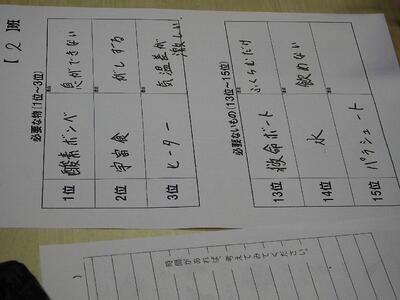 【 2 】班
必要な物(1位〜3位)
1位 酸素ボンベ 息ができない
2位 宇宙食 がしする
3位 ヒーター 気温差が激しい
必要ないもの(13位〜15位)
13位 救命ボート ふくらむだけ
14位 水 飲めない
15位 パラシュート
時間があれば、考えてみてください。